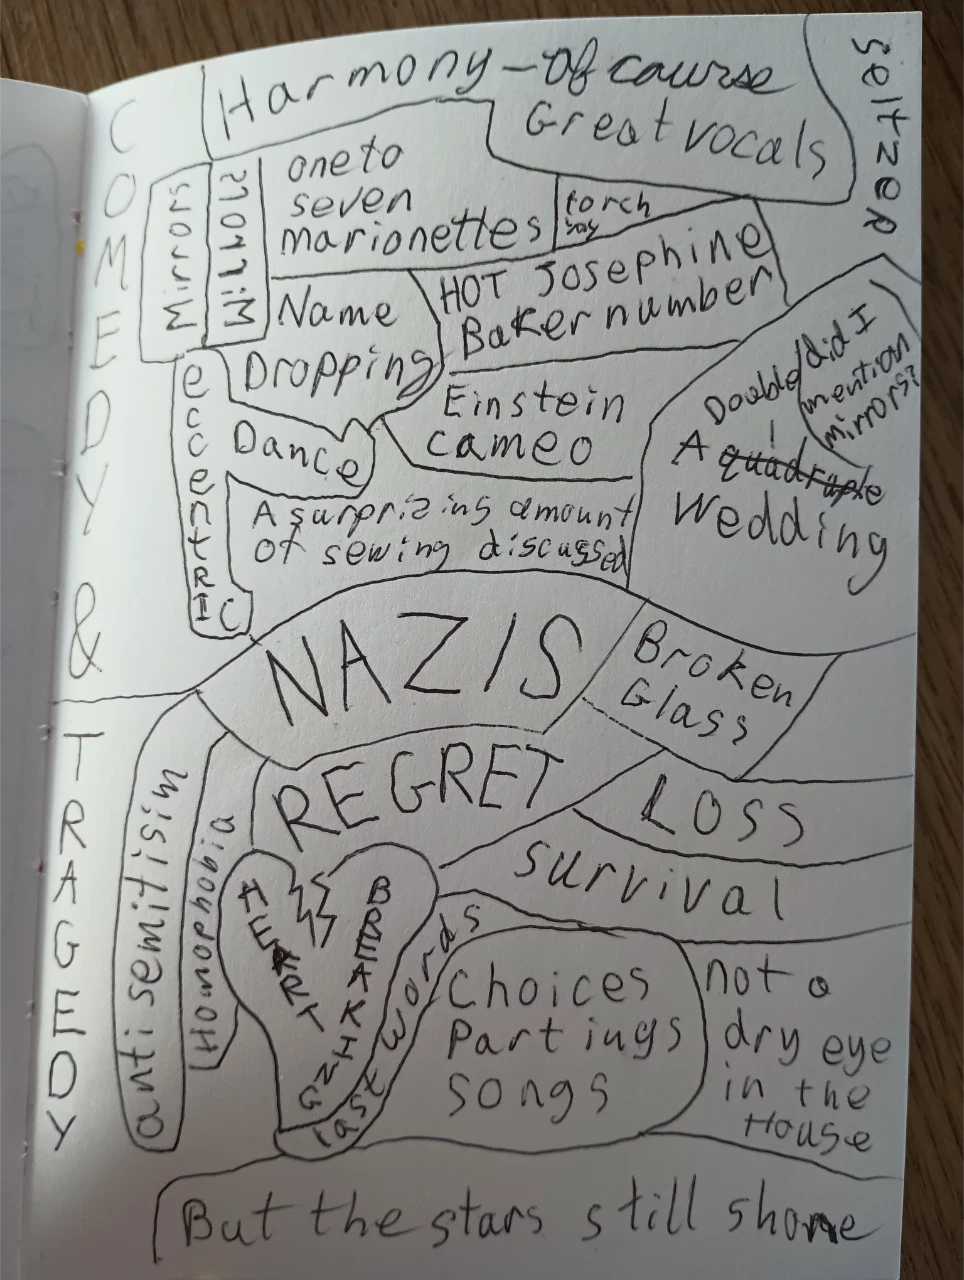 COMEDY &
TRAGEDY
Harmony - of course
Great vocals
Seltzer
Mirrors
Mirrors
one to
seven
marionettes
torch
song
Name
Dropping
HOT Josephine
Baker number
eccentric
Dance
Einstein
cameo
Double
A quadruple
Wedding
did I
mention
mirrors?
A surprizing amount
of sewing discussed
NAZIS
Broken
Glass
REGRET
LOSS
survival
antisemitisim
Homophobia
HEART
BREAKING
last words
Choices
Partings
songs
not a
dry eye
in the
House
But the stars still shone